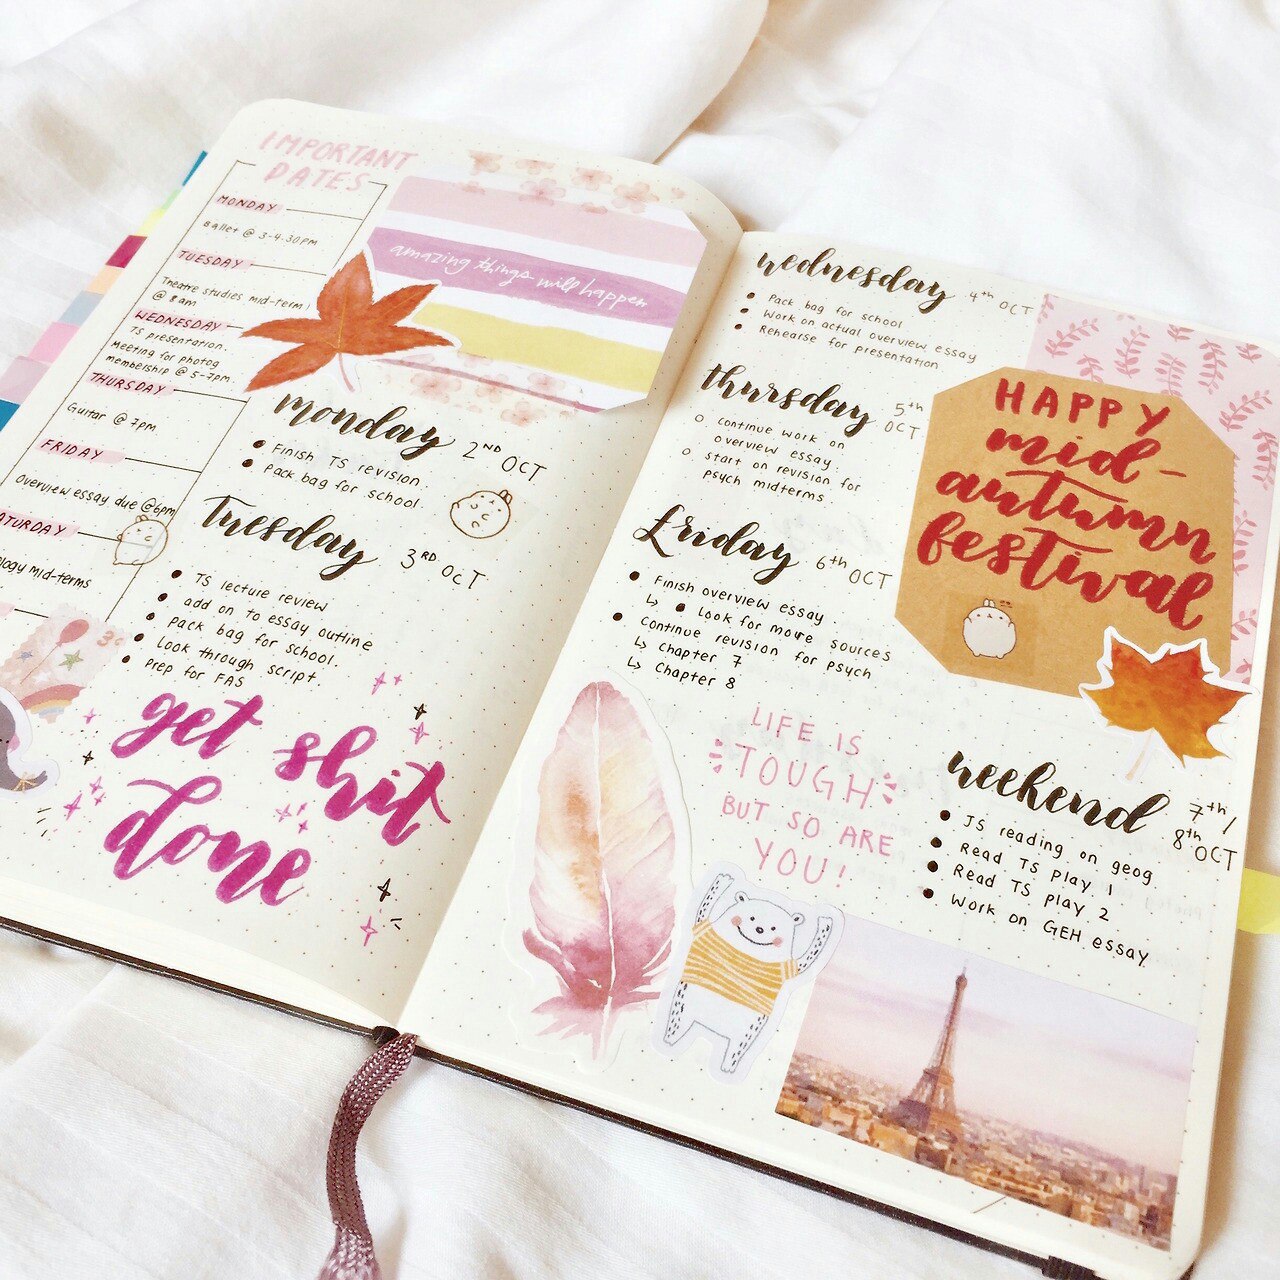 IMPORTANT
DATES
MONDAY
Ballet @ 3-4.30PM
TUESDAY
Theatre studies mid-term
@ 8am
WEDNESDAY
TS presentation.
Meeting for photog
membership @ 5-7pm.
THURSDAY
Guitar @ 7pm
FRIDAY
Overview essay due @6pm
ATURDAY
ology mid-terms
3c
amazing things will happen
monday 2ND OCT
Finish TS revision.
pack bag for school
Tuesday 3RD OCT
TS lecture review
add on to essay outline
pack bag for school.
Look through script.
prep for FAS
get shit
done
wednesday 4th OCT
Pack bag for school
Work on actual overview essay
Rehearse for presentation
thursday 5th OCT
continue work on
overview essay.
start on revision for
psych midterms
friday 6th OCT
Finish overview essay
↳ Look for more sources
Continue revision for psych
↳ chapter 7
↳ Chapter 8
HAPPY
mid-
autumn
festival
LIFE IS
TOUGH
BUT SO ARE
YOU!
weekend 7th/
8th OCT
JS reading on geog
Read TS play 1
Read TS play 2
Work on GEH essay